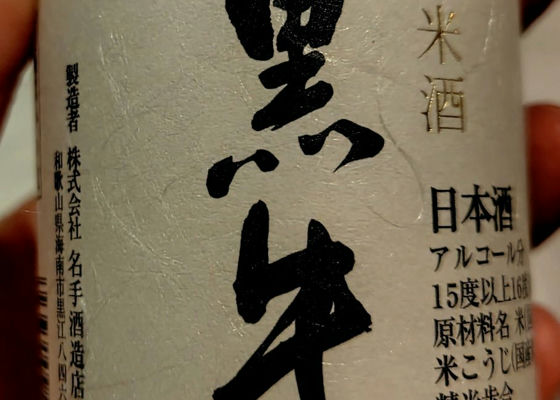 米酒
黒牛
日本酒
アルコール分
15度以上16度
原材料名 米(
米こうじ(国産
精米歩合
製造者 株式会社 名手酒造店
和歌山県海南市黒江八四六